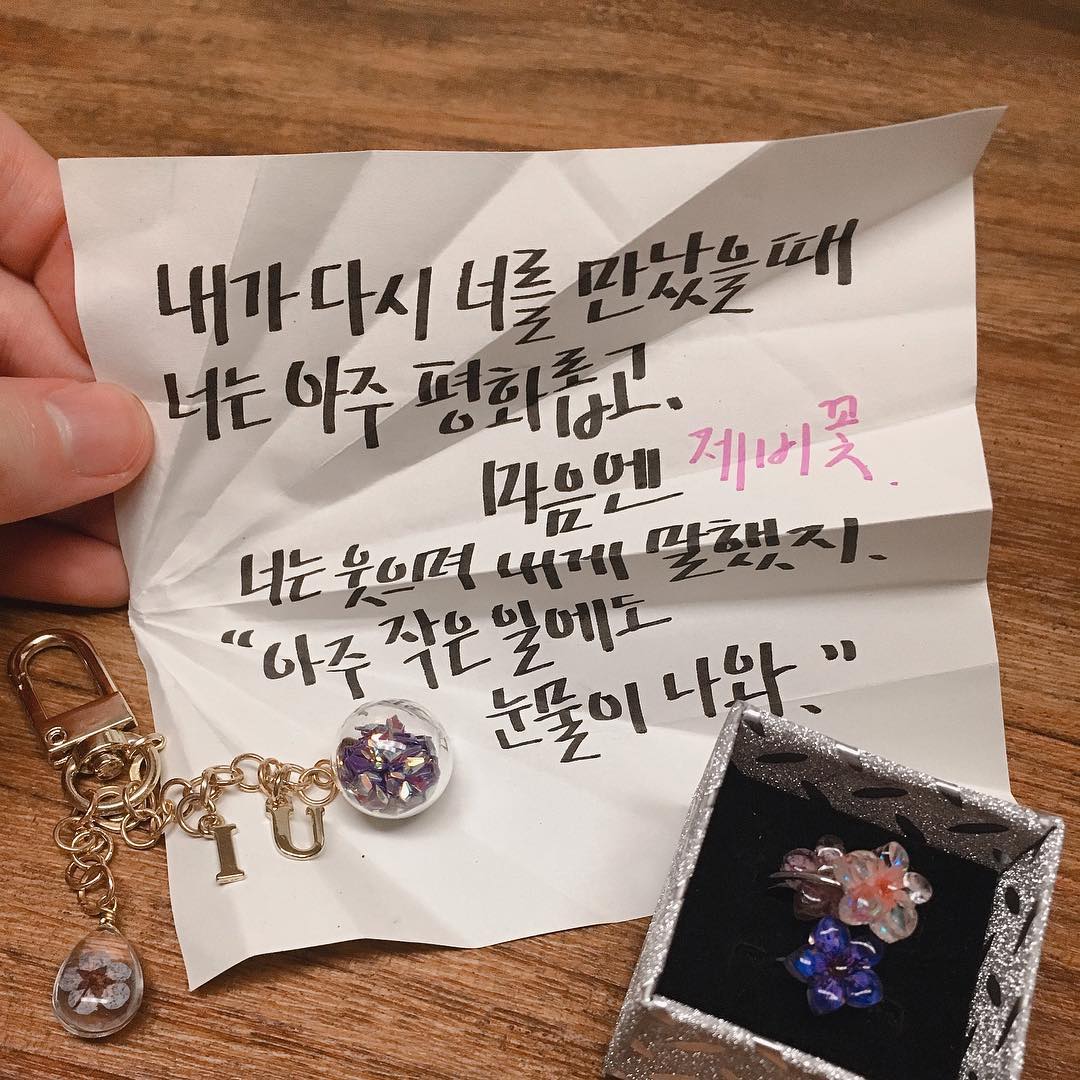 내가 다시 너를 만났을 때
너는 아주 평화롭고.
마음엔 제비꽃.
너는 웃으며 내게 말했지.
"아주 작은 일에도
눈물이 나와."
I U